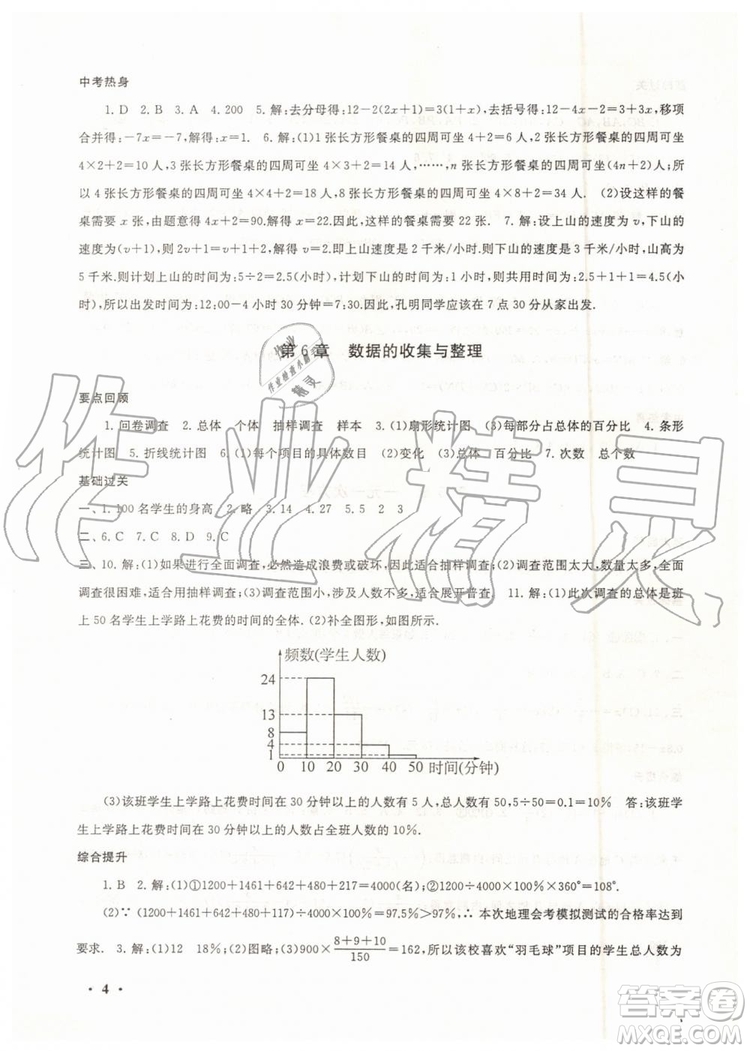 中考热身
1. D 2. B 3. A 4. 200 5. 解:去分母得:12-2(2x+1)=3(1+x),去括号得:12-4x-2=3+3x,移项
合并得:-7x=-7,解得:x=1. 6. 解:(1)1 张长方形餐桌的四周可坐 4+2=6 人,2 张长方形餐桌的四周可坐
4×2+2=10 人,3 张长方形餐桌的四周可坐 4×3+2=14 人,……,n 张长方形餐桌的四周可坐(4n+2)人;
所以 4 张长方形餐桌的四周可坐 4×4+2=18 人,8 张长方形餐桌的四周可坐 4×8+2=34 人. (2)设这样的餐
桌需要 x 张,由题意得 4x+2=90.解得 x=22. 答:这样的餐桌需要 22 张. 7. 解:设上山的速度为 v,下山的
速度为(v+1),则 2v+1=v+1+2,解得 v=2.即上山速度是 2 千米/小时.则下山的速度是 3 千米/小时,山高为
5 千米.则计划上山的时间为:5÷2=2.5(小时),计划下山的时间为:1 小时,则共用时间为:2.5+1+1=4.5(小
时),所以出发时间为:12:00-4 小时 30 分钟=7:30.所以,孔明同学应该在 7 点 30 分从家出发.
第 6 章 数据的收集与整理
要点回顾
1. 问卷调查 2. 总体 个体 抽样调查 样本 3. (1)扇形统计图 (3)每部分占总体的百分比 4. 条形
统计图 5. 折线统计图 6. (1)每个项目的具体数目 (2)变化 (3)总体 百分比 7. 次数 总个数
基础过关
一、1. 100 名学生的身高 2. 略 3. 14 4. 27 5. 5 2 3
二、6. C 7. C 8. D 9. C
三、10. 解:(1)如果进行全面调查,必然造成浪费或破坏,因此适合抽样调查. (2)调查范围太大,数量太多,全面
调查不太可能,适合使用抽样调查. (3)调查范围小,涉及人数不多,适合展开普查. 11. 解:(1)此次调查的总体是班
上 50 名学生上学路上花费的时间的全体. (2)补全图形,如图所示.
频数(学生人数)
24
13
8
4
1
0 10 20 30 40 50 时间(分钟)
(3)该班学生上学路上花费时间在 30 分钟以上的人数有 5 人,总人数有 50,5÷50=0.1=10% 答:该班学
生上学路上花费时间在 30 分钟以上的人数占全班人数的 10%.
综合提升
1. B 2. 解:(1)①1200+1461+642+480+217=4000(名);②1200÷4000×100%×360°=108°.
(2)∵ (1200+1461+642+480+217)÷4000×100%=97.5%>97%,∴ 本次地理会考模拟测试的合格率达到
要求. 3. 解:(1)12 18%;(2)图略;(3)900×\frac{8+9+10}{150} 所以该校喜欢“羽毛球”项目的学生总人数为
· 4 ·
作业精灵
答案圈
MXQE.COM